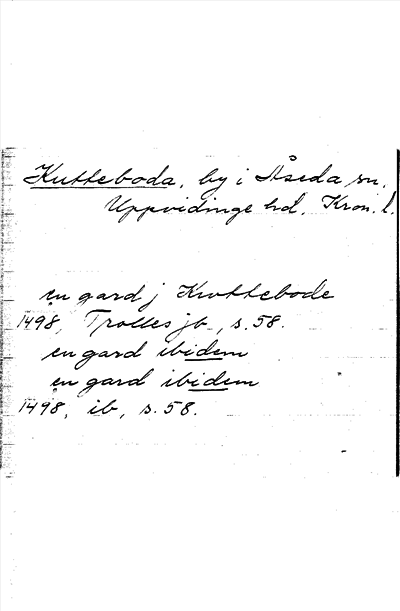 Kutteboda, by i Åseda sn,
Uppvidinge hd, Kron. l.
en gard j Knottebode
1498, Trolles jb, s. 58.
en gard ibidem
en gard ibidem
1498, ib, s. 58.